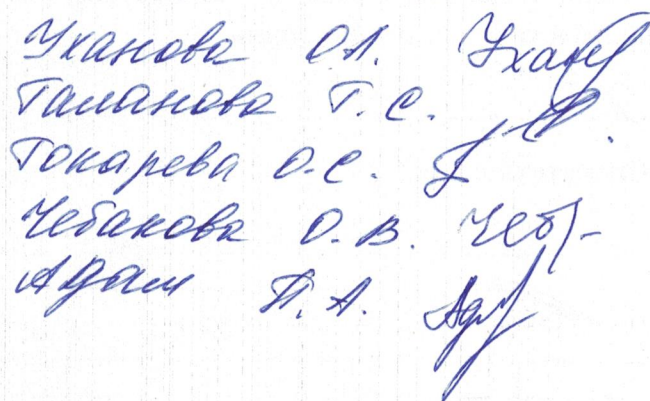 Уханова О.Л. Ухан
Таланова Т.С.
Токарева О.С.
Чебакова О.В. Чеб
Адам П.А. Адм